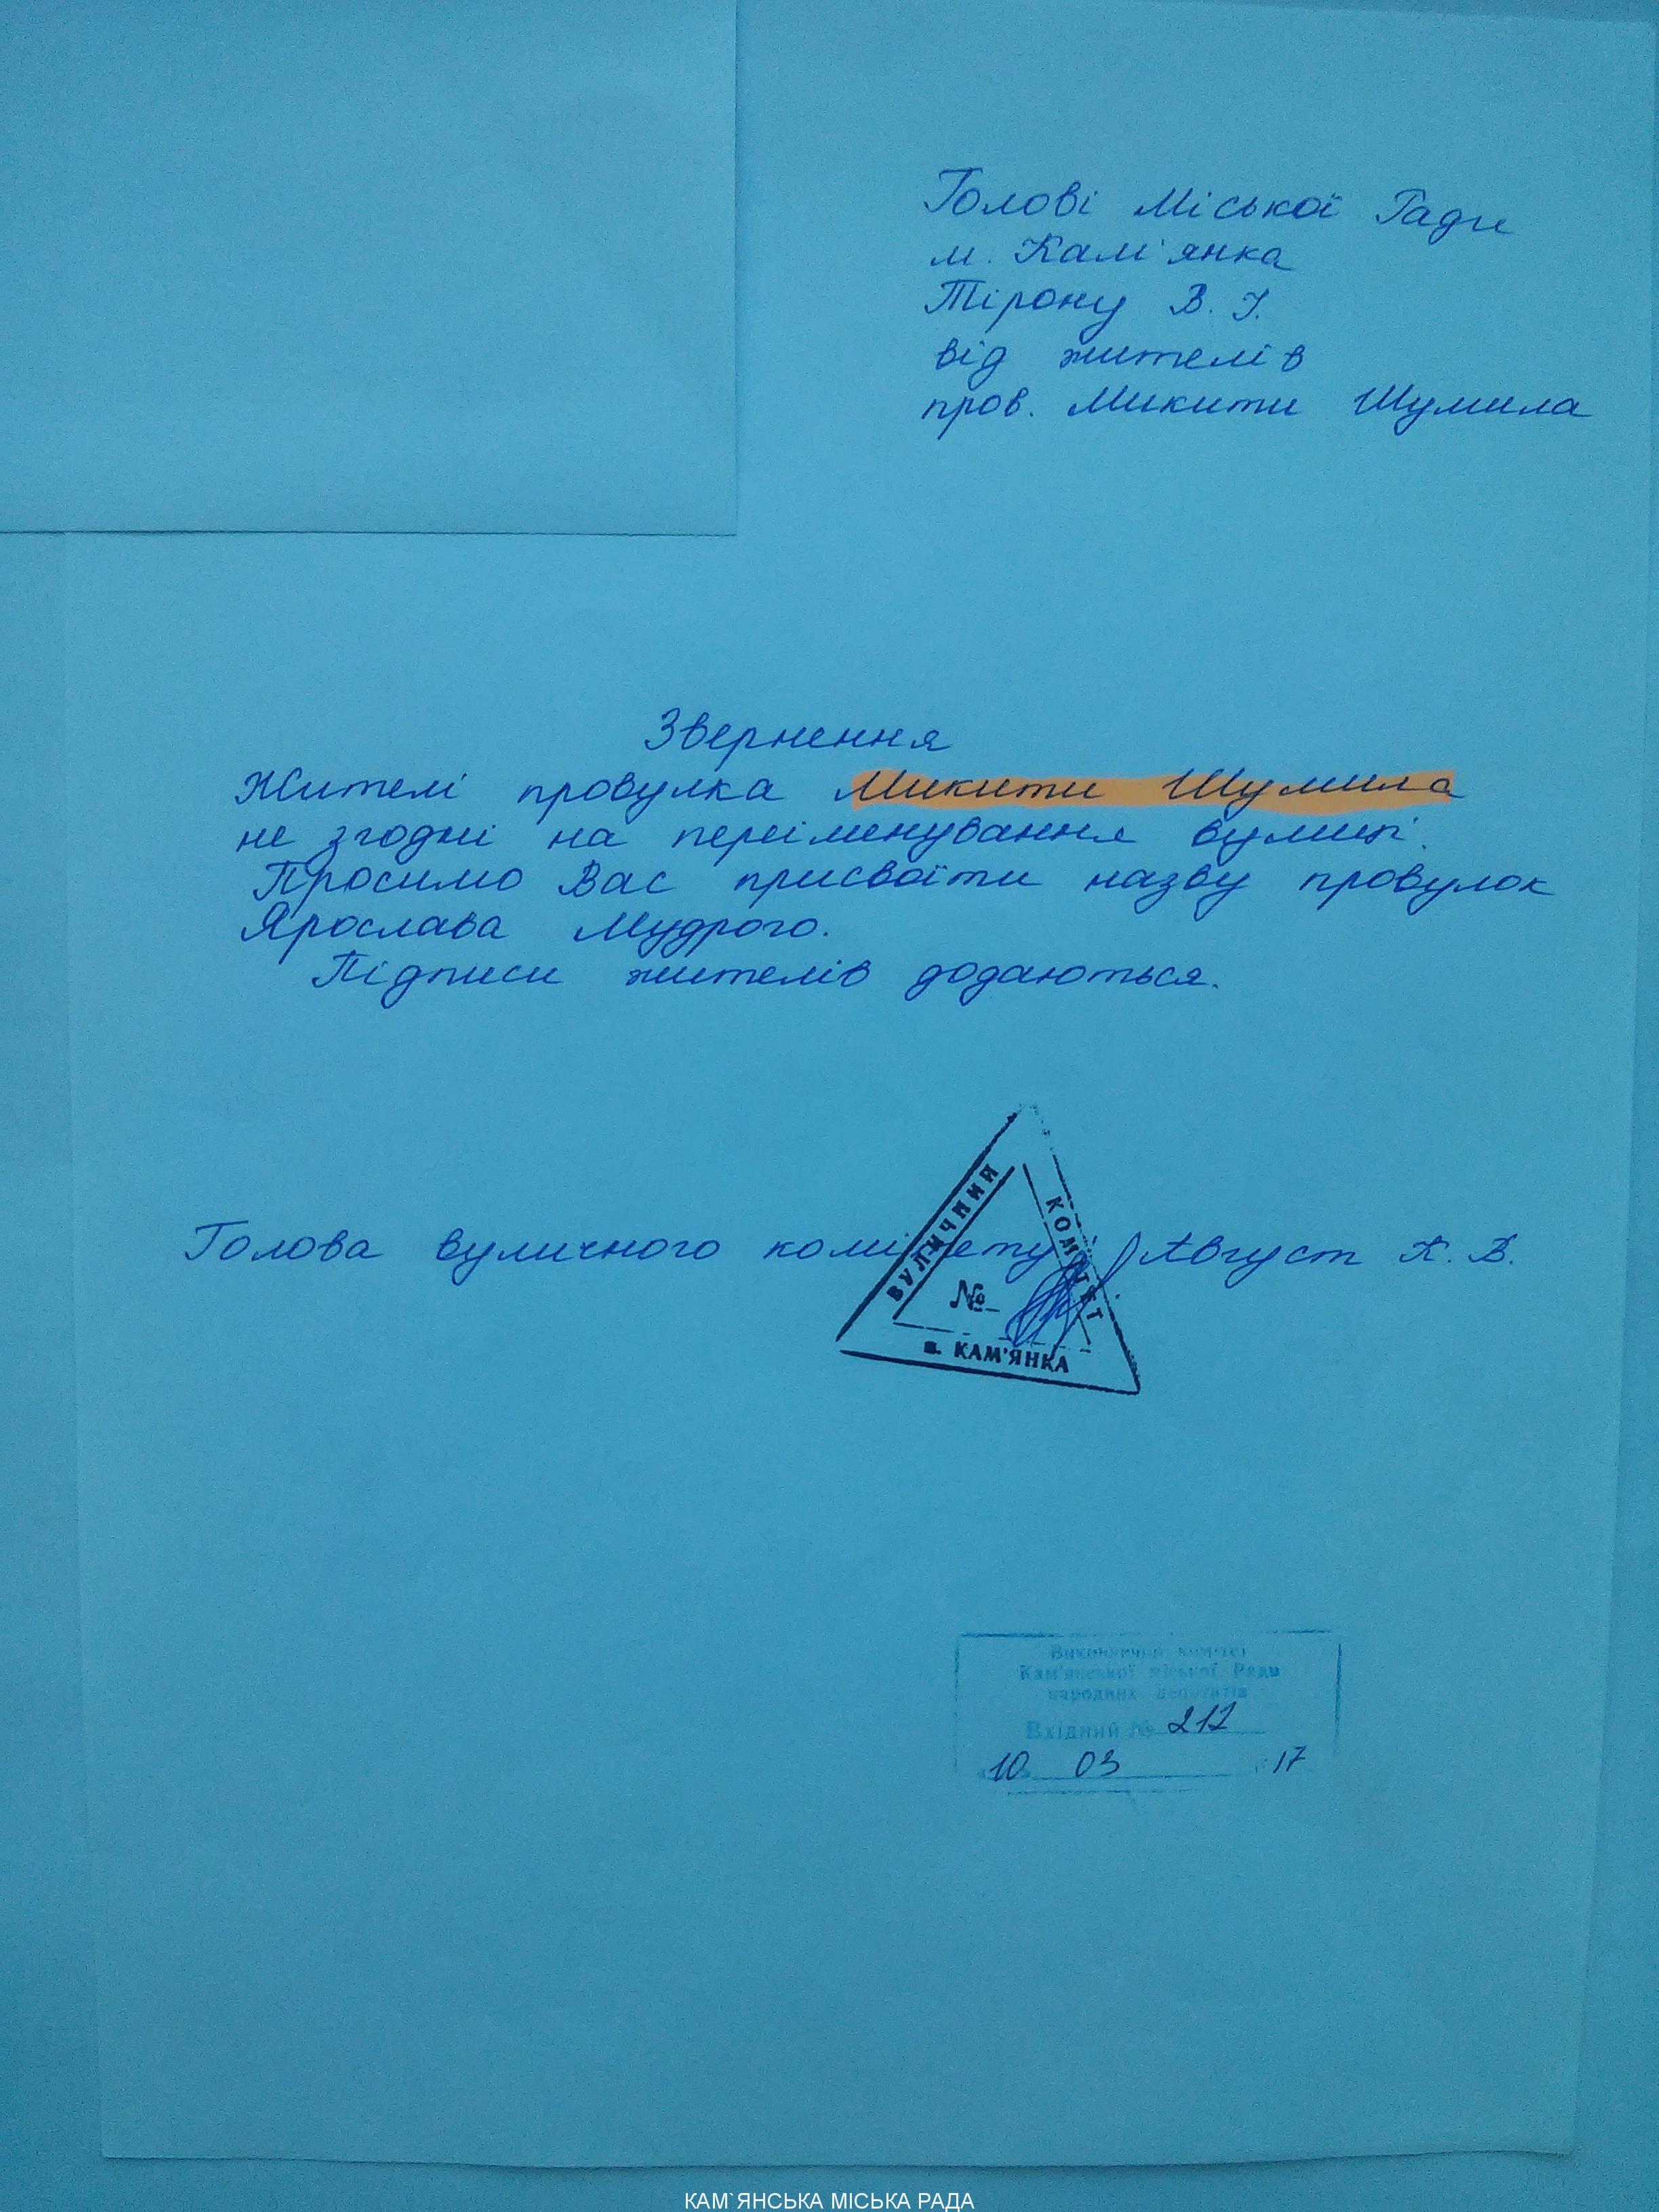 Голові Міської Ради
м. Кам'янка
Тірону В. І.
від жителів
пров. Микити Шумила
Звернення
Жителі провулка Микити Шумила
не згодні на переіменування вулиці.
Просимо Вас присвоїти назву провулок
Ярослава Мудрого.
Підписи жителів додаються.
Голова вуличного комітету Август К. В.
ВУЛИЧНИЙ
КОМІТЕТ
№
м. КАМ'ЯНКА
Виконавчий комітет
Кам'янської міської Ради
народних депутатів
Вхідний № 212
10 03 17
КАМ`ЯНСЬКА МІСЬКА РАДА